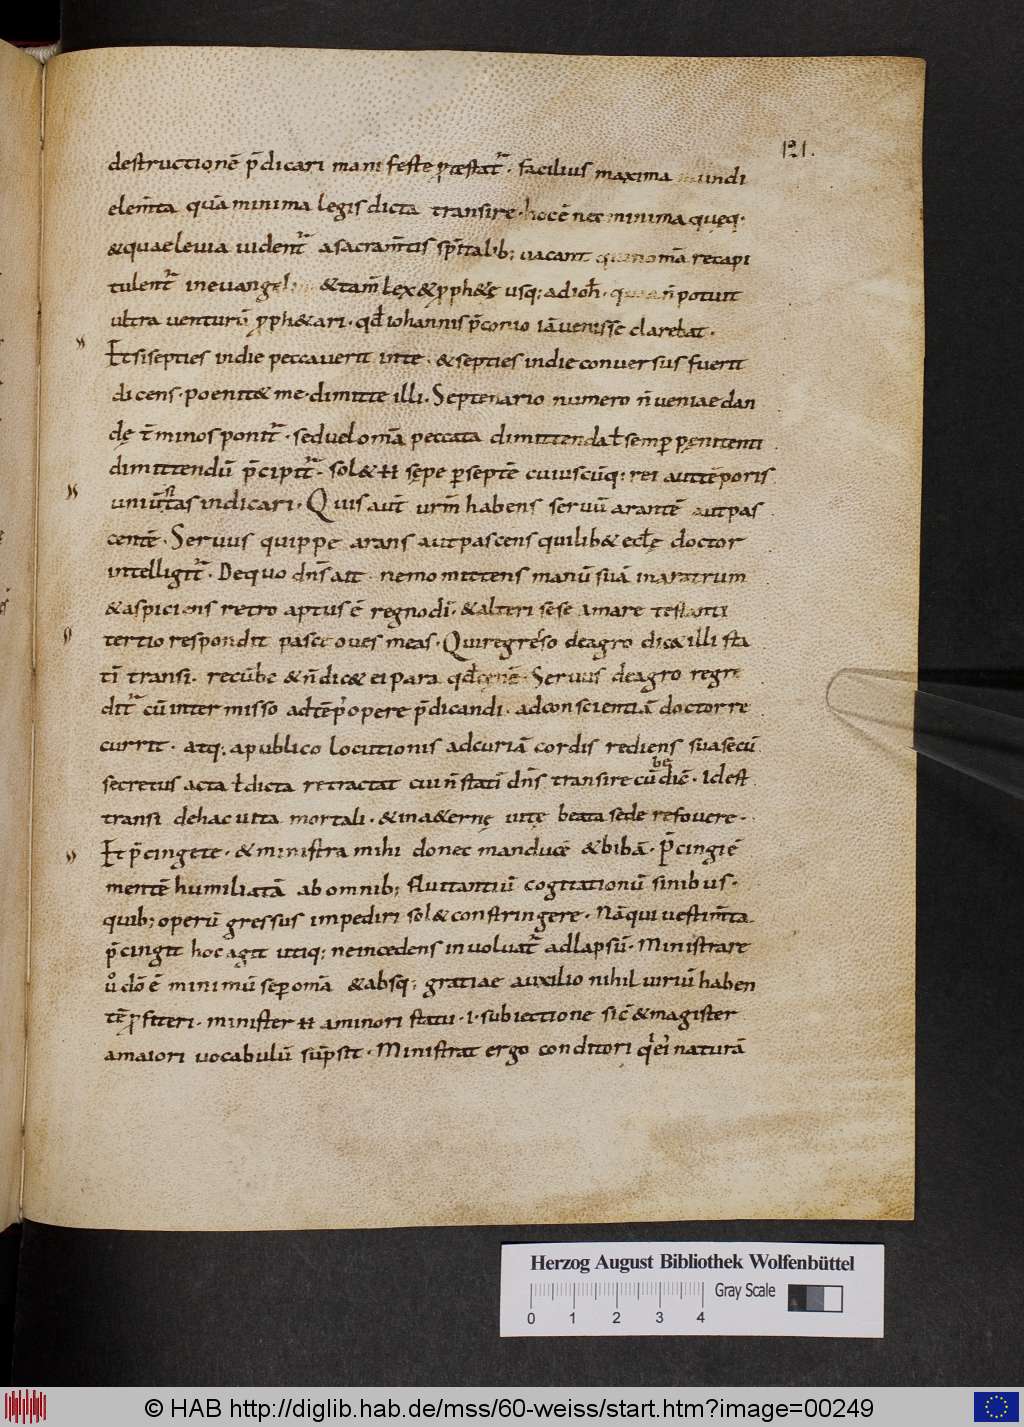 121.
destructionē p̄dicari manifeste p̱testat᷑. facilius maxima mundi
elem̄ta quā minima legis dicta transire. hoc ē nec minima quęq.
& quae leuia uident᷑ a sacram̄tis sp̄italib; uacant omā recapi
tulent᷑ in euangelio & tam̄ lex & p̱ph&ę usq; ad ioh̄. n̄ potuit
ultra venturū p̱ph&ari. qđ iohannis p̄conio iā venisse clarebat.
Et si septies in die peccaverit in te. & septies in die conversus fuerit
dicens. poenit& me. dimitte illi. Septenario numero n̄ veniae dan
dę t̄minos ponit᷑. sed uel omā peccata dimittenda ł semp̱ pęnitenti
dimittendū p̄cipit᷑. sol& N sępe p̱ septē cuiuscūq; rei aut tēporis
uniūstas indicari. Quis aūt ur̄m habens servū arantē aut pas
centē. Servus quippe arans aut pascens quilib& eccłę doctor
intelligit᷑. De quo dn̄s ait. nemo mittens manū suā in aratrum
& aspiciens retro aptus ē regno dī. & alteri sese amare testanti
tertio respondit pasce oves meas. Qui regresso de agro dic& illi sta
tī transi. recūbe & n̄ dic& ei para qđ cęnē. Servus de agro regre
dit᷑ cū intermisso ad tēp᷒ opere p̄dicandi. ad conscientiā doctor re
currit. atq; a publico locutionis ad curiā cordis rediens sua secū
secretus acta ł dicta retractat cui n̄ statī dn̄s transire cūbe dic̄. Id est
transi de hac uita mortali. & in a&ernę uitę beata sede refouere.
Et p̄cinge te. & ministra mihi donec manducē & bibā. P̄cingi ē
mentē humiliatā ab omnib; fluitantiū cogitationū sinibus.
quib; operū gressus impediri sol& constringere. Nā qui vestim̄ta
p̄cingit hoc agit utiq; ne incedens involuat᷑ ad lapsū. Ministrare
ů dō ē minimū se p̱ omā & absq; gratiae auxilio nihil uiriū haben
tē p̱fiteri. minister N a minori statu .i. subiectione sic̄ & magister
a maiori vocabulū sūpsit. Ministrat ergo conditori naturā
Herzog August Bibliothek Wolfenbüttel
Gray Scale
0 1 2 3 4
© HAB http://diglib.hab.de/mss/60-weiss/start.htm?image=00249